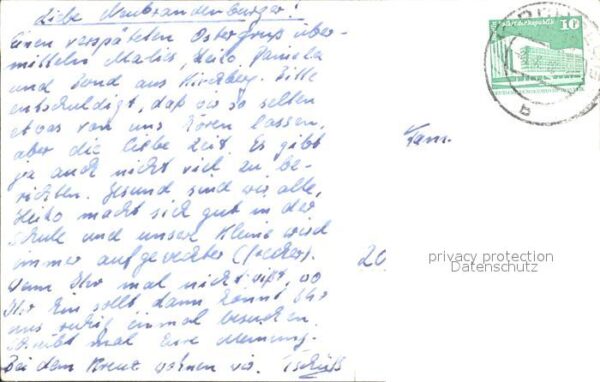 Liebe Neubrandenburger!
Einen verspäteten Ostergruß über-
mitteln Marlies, Heiko, Daniela
und Bernd aus Kirchberg. Bitte
entschuldigt, daß wir so selten
etwas von uns hören lassen,
aber die liebe Zeit. Es gibt
ja auch nicht viel zu be-
richten. Gesund sind wir alle,
Heiko macht sich gut in der
Schule und unsere Kleine wird
immer aufgeweckter (frecher).
Wenn Ihr mal nicht wißt, wo
Ihr hin sollt dann könnt Ihr
uns ruhig einmal besuchen.
Schreibt mal Eure Meinung.
Bei dem Kreuz wohnen wir. Tschüss
10
B
Fam.
20
privacy protection
Datenschutz